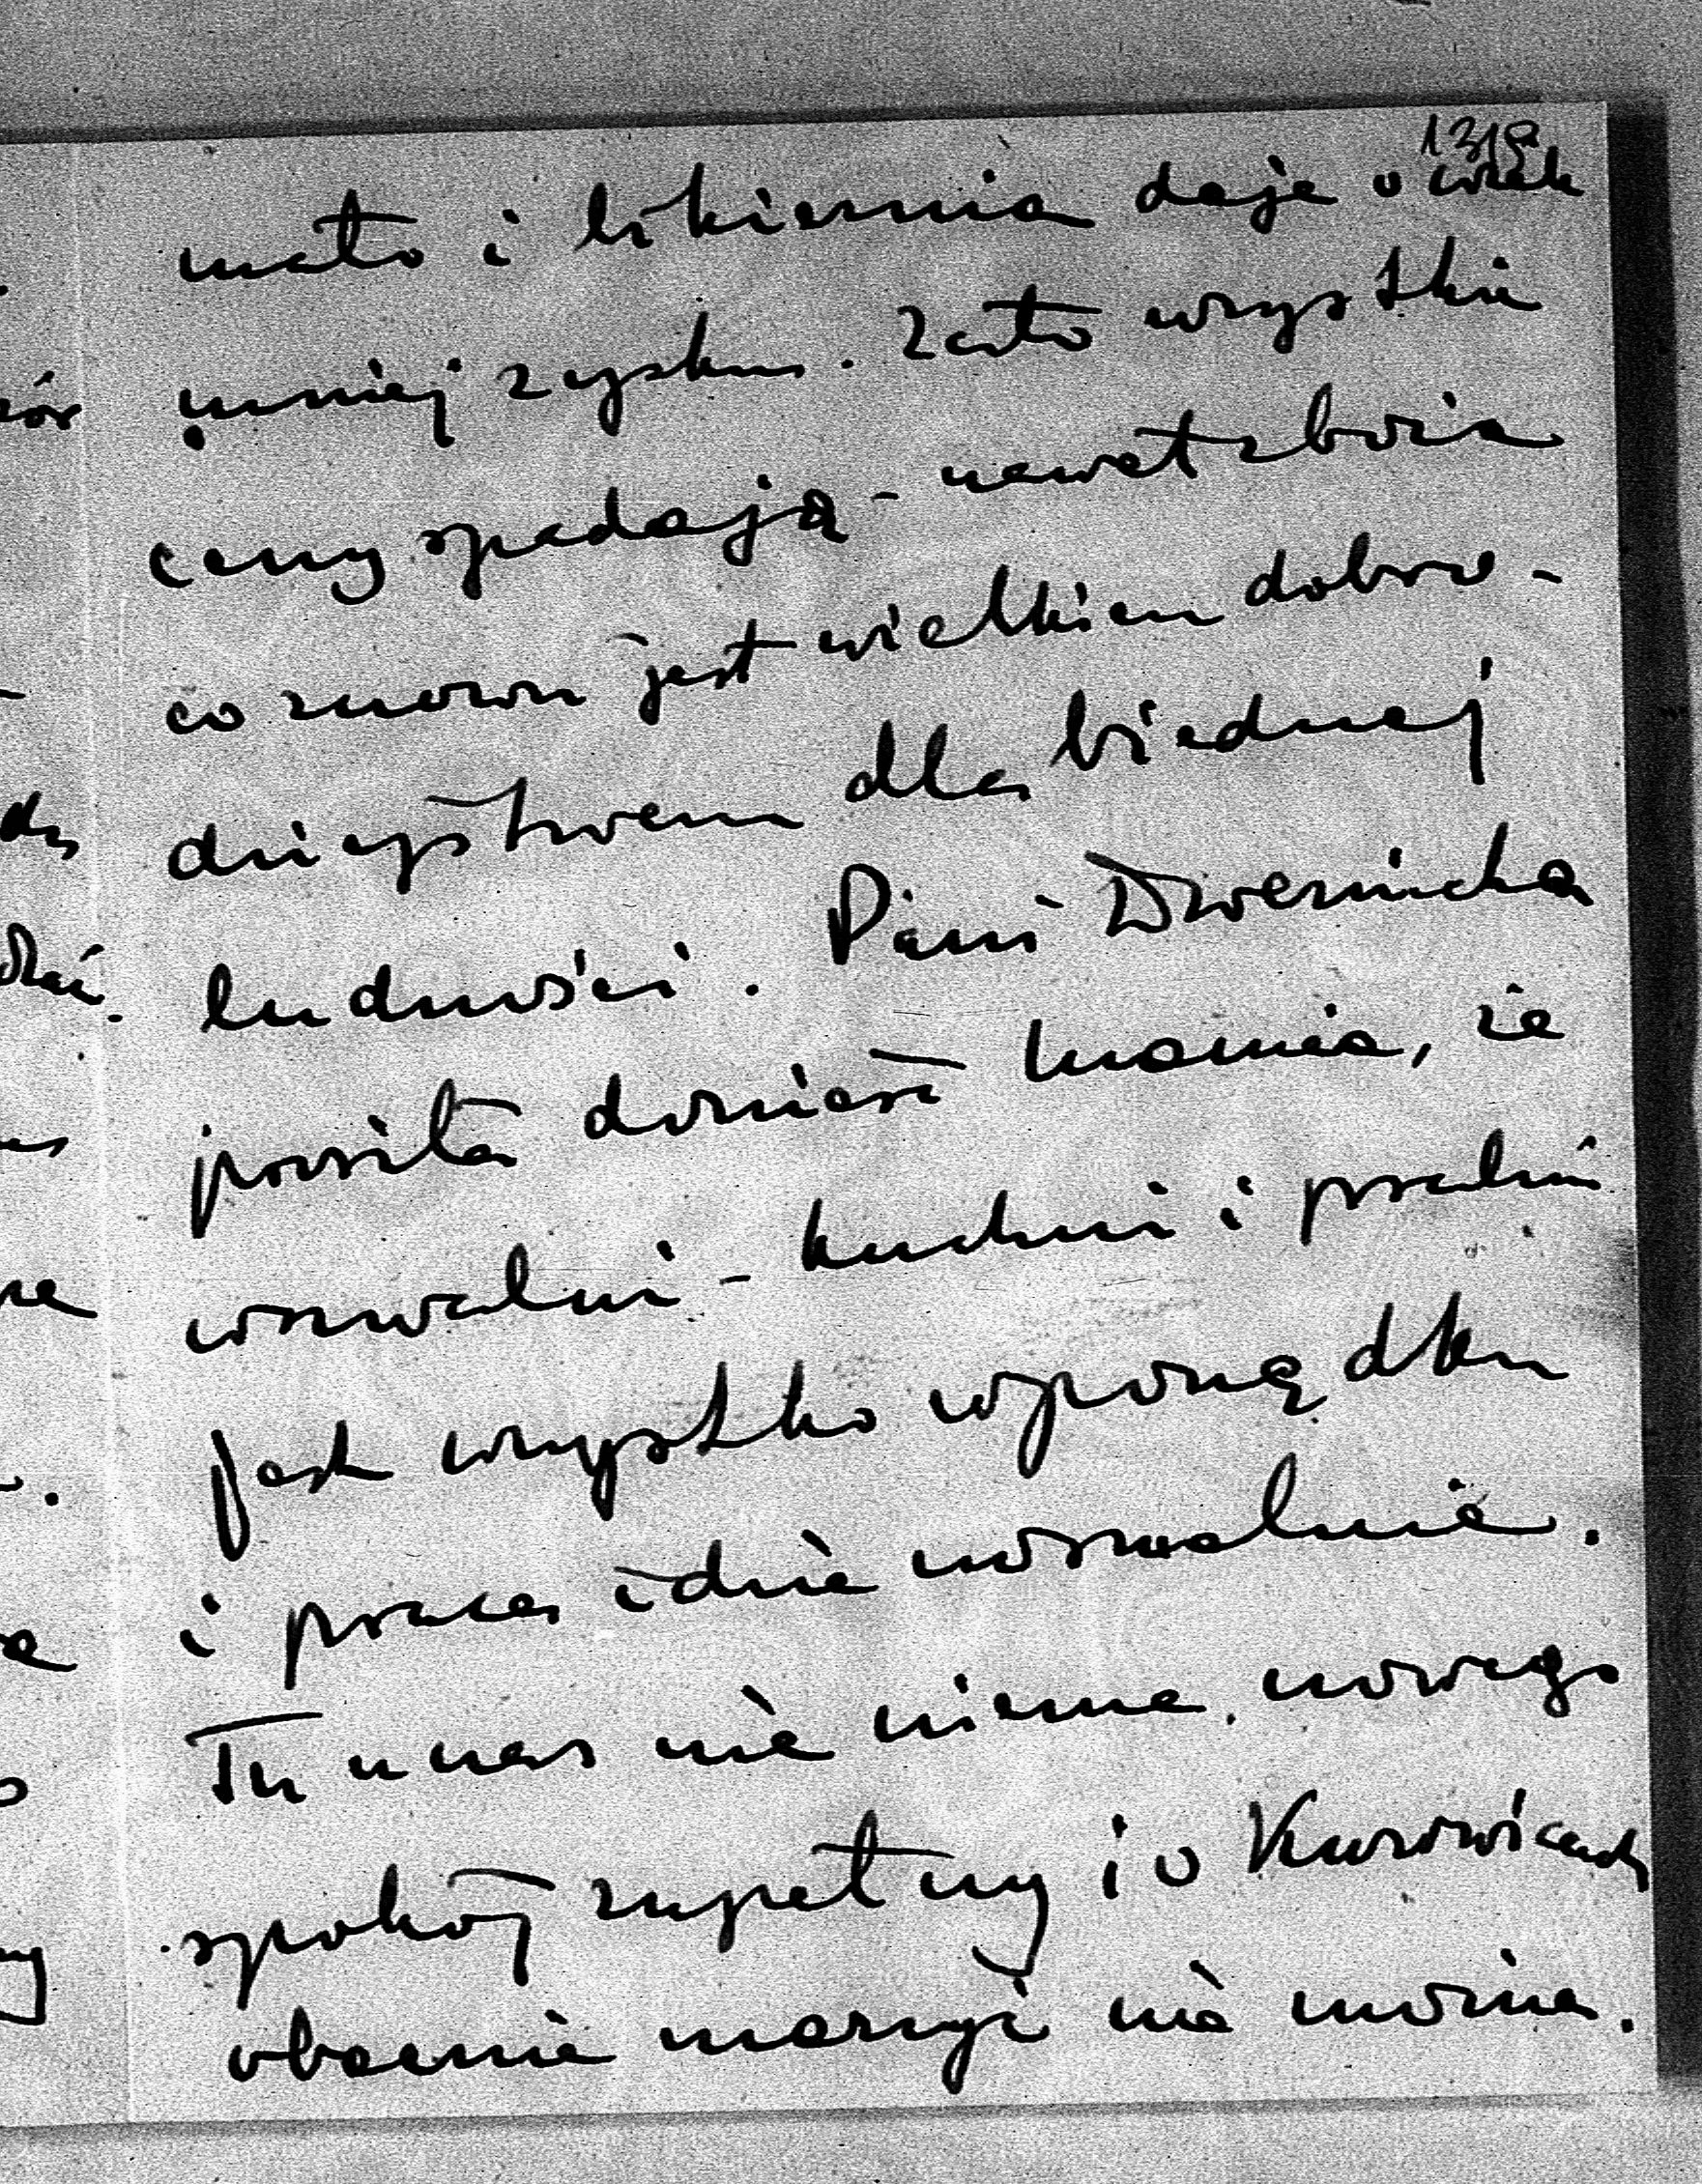 1318
mało i cukiernia daje o wiele
mniej zysku. Zato wszystkie
ceny spadają - nawet zboża
co znowu jest wielkiem dobro-
dziejstwem dla biednej
ludności. Pani Dwernicka
prosiła donieść Mamie, że
w - kuchni i pralni
jest wszystko w porządku
i praca idzie normalnie.
Tu u nas nic niema nowego
spokój zupełny i o Kurowicach
obecnie marzyć nie można.